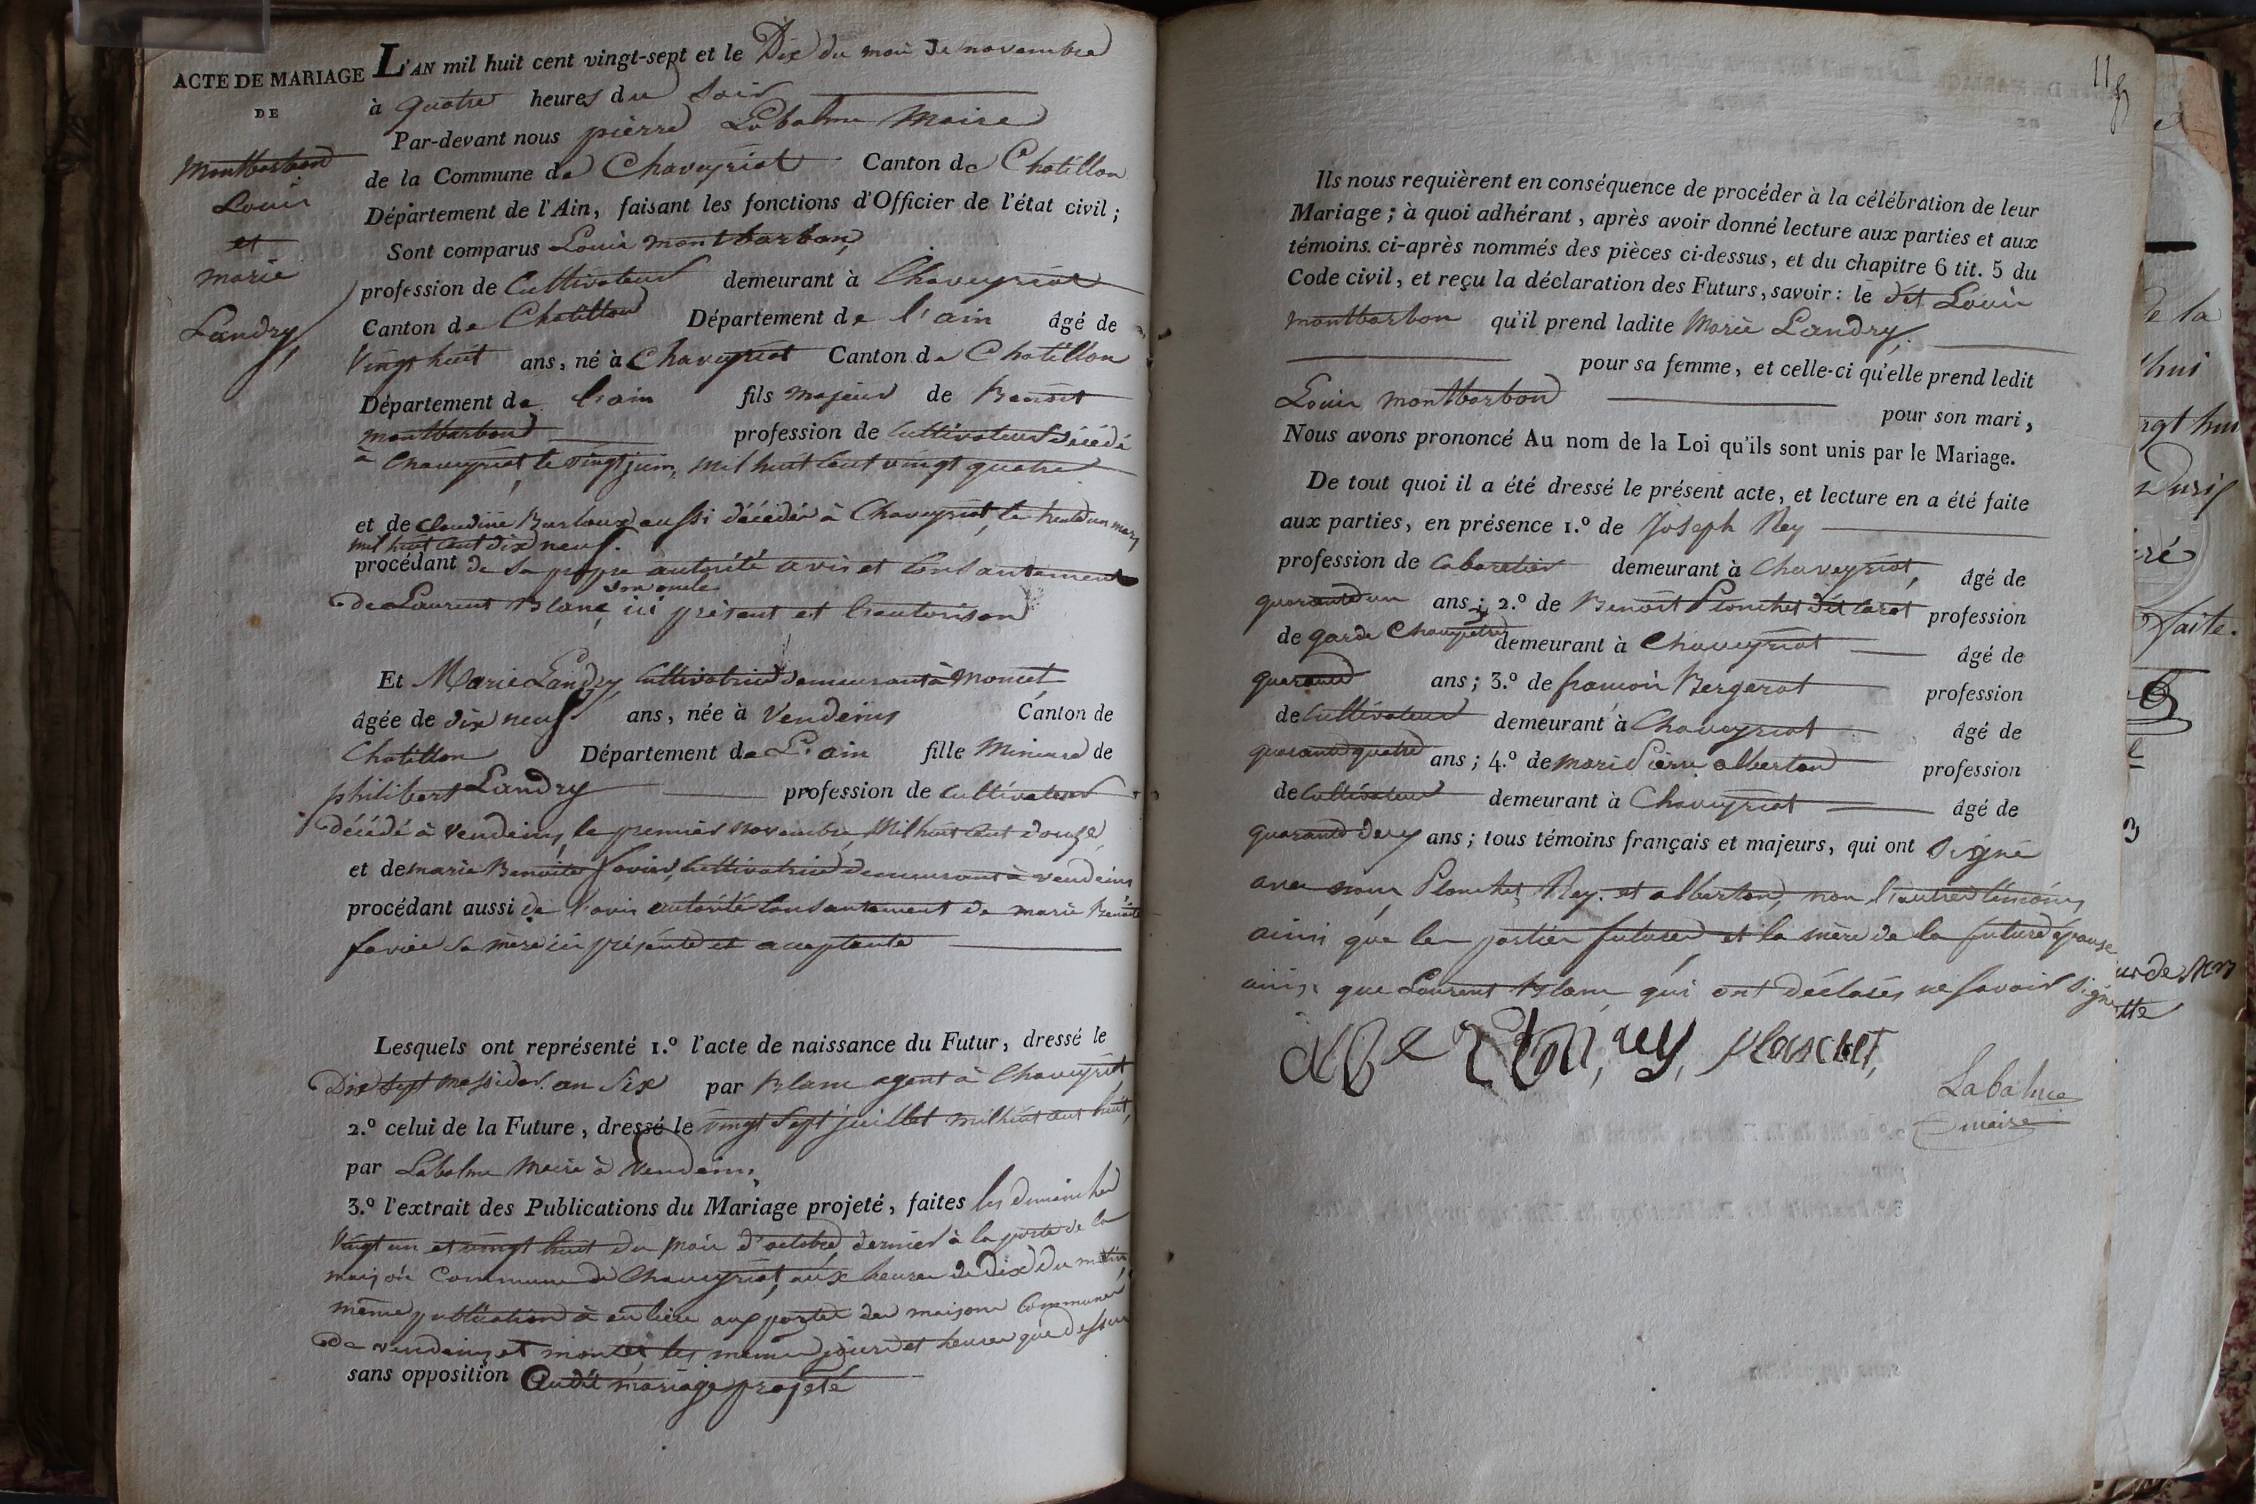 ACTE DE MARIAGE
DE
Montbarbon
Louis
et
marie
Landry
L'AN mil huit cent vingt-sept et le Dix du mois de novembre
à quatre heures du soir
Par-devant nous pierre Labalme Maire
de la Commune de Chaveyriat Canton de Chatillon
Département de l'Ain, faisant les fonctions d'Officier de l'état civil ;
Sont comparus Louis montbarbon
profession de Cultivateur demeurant à Chaveyriat
Canton de Chatillon Département de l'ain âgé de
Vingt huit ans, né à Chaveyriat Canton de Chatillon
Département de l'ain fils majeur de Benoit
montbarbon profession de Cultivateur décédé
à Chaveyriat, le vingt juin, mil huit cent vingt quatre
et de Claudine Burloux aussi décédée à Chaveyriat, le trente un mars
mil huit cent dix neuf.
procédant de sa propre autorité avis et Consantement
son oncle
de Laurent Blanc, ici présent et l'autorison
Et Marie Landry, Cultivatrice demeurant à Moncet
âgée de dix neuf ans, née à Vendeins Canton de
Chatillon Département de L'ain fille Mineure de
philibert Landry profession de Cultivateur
décédé à Vendeins, le premier novembre, Mil huit cent douze,
et de marie Benoite favier, Cultivatrice demeurant à vendeins
procédant aussi de l'avis autorité Consantement de marie Benoite
favier sa mère ici présente et acceptante
Lesquels ont représenté 1.º l'acte de naissance du Futur, dressé le
Dix sept messidor an Six par Blanc agent à Chaveyriat
2.º celui de la Future, dressé le vingt sept juillet mil huit cent huit,
par Labalme Maire à Vendeins,
3.º l'extrait des Publications du Mariage projeté, faites les dimanches
Vingt un et vingt huit du mois d'octobre dernier à la porte de la
maison Commune de Chaveyriat, aux heures de Dix du matin,
même publication à eu lieu aux portes des maisons Communes
de vendeins et moncet, les mêmes jours et heures que dessus
sans opposition Audit mariage projeté
118
Ils nous requièrent en conséquence de procéder à la célébration de leur
Mariage ; à quoi adhérant, après avoir donné lecture aux parties et aux
témoins. ci-après nommés des pièces ci-dessus, et du chapitre 6 tit. 5 du
Code civil, et reçu la déclaration des Futurs, savoir : le dit Louis
montbarbon qu'il prend ladite Marie Landry,
pour sa femme, et celle-ci qu'elle prend ledit
Louis montbarbon pour son mari,
Nous avons prononcé Au nom de la Loi qu'ils sont unis par le Mariage.
De tout quoi il a été dressé le présent acte, et lecture en a été faite
aux parties, en présence 1.º de Joseph Rey
profession de Cabaretier demeurant à Chaveyriat, âgé de
quarante un ans ; 2.º de Benoit Planchet dit Carat profession
de garde Champêtre demeurant à Chaveyriat âgé de
quarante ans ; 3.º de francois Bergerat profession
de Cultivateur demeurant à Chaveyriat âgé de
quarante quatre ans ; 4.º de marie Pierre alberton profession
de Cultivateur demeurant à Chaveyriat âgé de
quarante deux ans ; tous témoins français et majeurs, qui ont signé
avec nous Planchet, Rey. et alberton, non l'autre témoins
ainsi que les parties futures et la mère de la future épouse
ainsi que Laurent Blanc qui ont déclarés ne savoir signer
Alberton, rey, planchet,
Labalme
maire